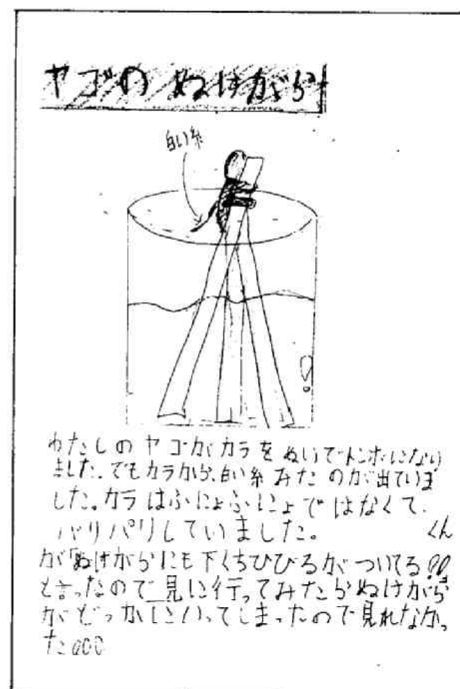 ヤゴの ぬけがら
白い糸
わたしの ヤゴがカラを ぬいでトンボになり
ました。でもカラから、白い糸 みたのが出ていま
した。カラはふにょふにょではなくて、
パリパリしていました。 くん
が「ぬけがらにも下くちひびるがついてる!!
と言ったので見に行ってみたらぬけがら
がどっかにいってしまったので見れなかっ
た